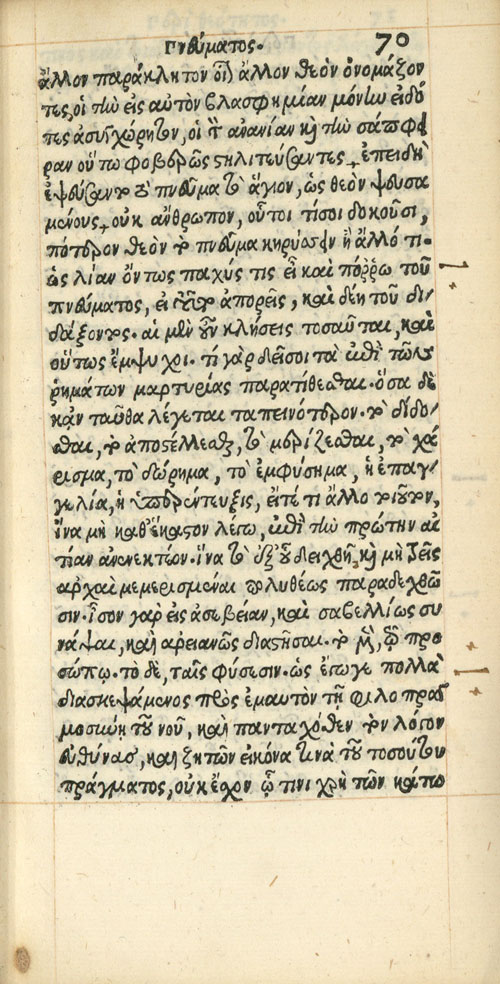 Πνεύματος. 70
ἄλλον παράκλητον οἷον ἄλλον θεὸν ὀνομάζον
τες, οἱ τὴν εἰς αὐτὸν βλασφημίαν μόνην εἰδό
τες ἀσυγχώρητον, οἱ τὸν ἀνανίαν καὶ τὴν σάπφει
ραν οὕτω φοβερῶς στηλιτεύσαντες, ἐπειδὴ
ἐψεύσαντο τὸ πνεῦμα τὸ ἅγιον, ὡς θεὸν ψευσα
μένους, οὐκ ἄνθρωπον, οὗτοι τί σοι δοκοῦσι,
πότερον θεὸν τὸ πνεῦμα κηρύσσειν ἢ ἄλλό τι.
ὡς λίαν ὄντως παχύς τις εἶ καὶ πόῤῥω τοῦ
πνεύματος, εἰ τοῦτο ἀπορεῖς, καὶ δέῃ τοῦ δι
δάξοντος. αἱ μὲν οὖν κλήσεις τοσαῦται, καὶ
οὕτως ἔμψυχοι. τί γὰρ δεῖ σοι τὰς ἐπὶ τῶν
ῥημάτων μαρτυρίας παρατίθεσθαι. ὅσα δὲ
κἀν ταῦθα λέγεται ταπεινότερον. τὸ δίδο
σθαι, τὸ ἀποστέλλεσθαι, τὸ μερίζεσθαι, τὸ χά
ρισμα, τὸ δώρημα, τὸ ἐμφύσημα, ἡ ἐπαγ
γελία, ἡ ὑπερέντευξις, εἴτέ τι ἄλλο τοιοῦτον,
ἵνα μὴ καθ' ἕκαστον λέγω, ἐπὶ τὴν πρώτην αἰ
τίαν ἀνενεκτέον. ἵνα τὸ ἐξ οὗ δειχθῇ, καὶ μὴ τρεῖς
ἀρχαὶ μεμερισμέναι πολυθέως παραδεχθῶ
σιν. ἴσον γὰρ εἰς ἀσέβειαν, καὶ σαβελλίως συ
νάψαι, καὶ ἀρειανῶς διαστῆσαι. τὸ μὲν, τῷ προ
σώπῳ. τὸ δὲ, ταῖς φύσεσιν. ὡς ἔγωγε πολλὰ
διασκεψάμενος πρὸς ἐμαυτὸν τῇ φιλοπραγ
μοσύνῃ τοῦ νοῦ, καὶ πανταχόθεν τὸν λόγον
εὐθύνας, καὶ ζητῶν εἰκόνα τινὰ τοῦ τοσούτου
πράγματος, οὐκ ἔσχον ᾧ τινι χρὴ τῶν κάτω